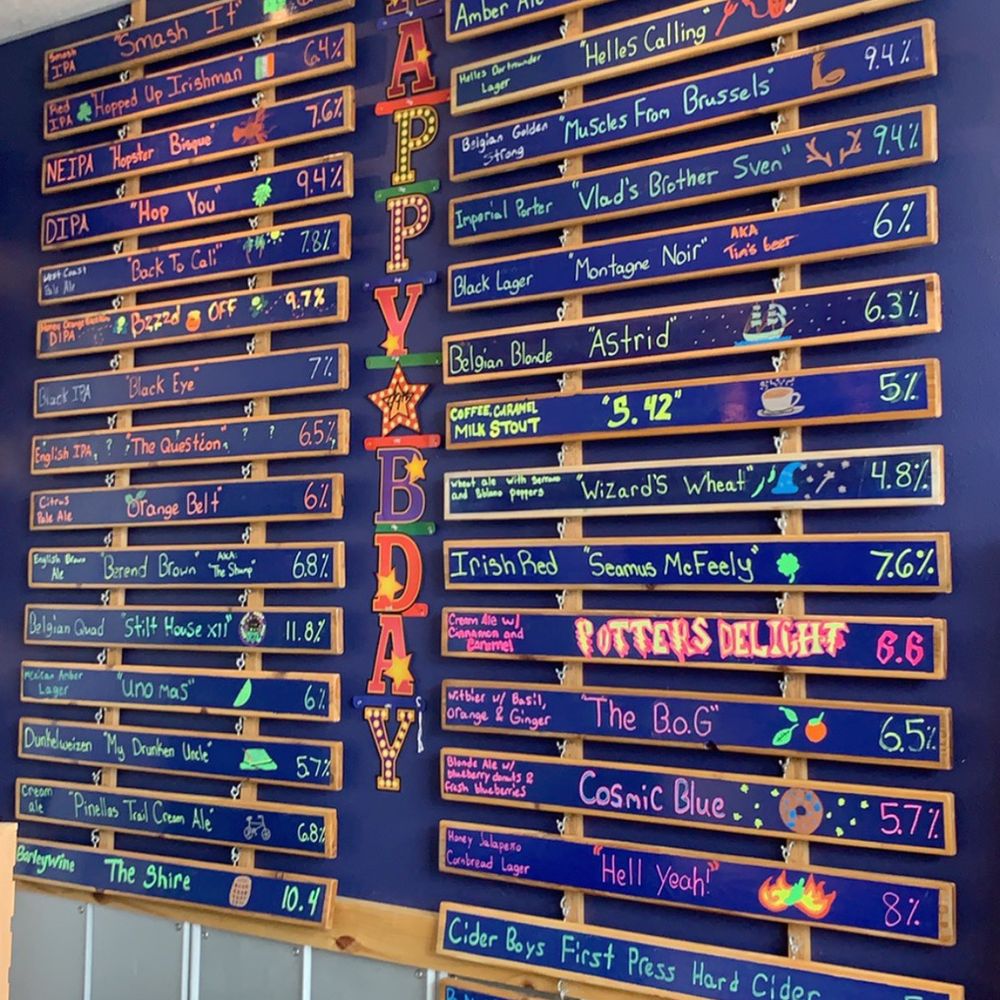 Smash IPA "Smash It"
Red IPA "Hopped Up Irishman" 6.4%
NEIPA "Hopster Bisque" 7.6%
DIPA "Hop You" 9.4%
West Coast Pale Ale "Back To Cali" 7.8%
DIPA Bzzzd OFF 9.7%
Black IPA "Black Eye" 7%
English IPA ? ? "The Question" ? ? 6.5%
Citrus Pale Ale "Orange Belt" 6%
English Brown Ale "Berend Brown" AKA: "The Stump" 6.8%
Belgian Quad "Stilt House XII" 11.8%
Mexican Amber Lager "Uno mas" 6%
Dunkelweizen "My Drunken Uncle" 5.7%
Cream ale "Pinellas Trail Cream Ale" 6.8%
Barleywine The Shire 10.4
HAPPY BDAY
Amber Ale
Helles Dortmunder Lager "Helles Calling"
Belgian Golden Strong "Muscles From Brussels" 9.4%
Imperial Porter "Vlad's Brother Sven" 9.4%
Black Lager "Montagne Noir" AKA Tim's beer 6%
Belgian Blonde "Astrid" 6.3%
COFFEE, CARAMEL MILK STOUT "5.42" 5%
wheat ale with serrano and poblano peppers "Wizard's Wheat" 4.8%
Irish Red "Seamus McFeely" 7.6%
Cream Ale w/ Cinnamon and Caramel POTTERS DELIGHT 6.6
Witbier w/ Basil, Orange & Ginger "The B.o.G" 6.5%
Blonde Ale w/ blueberry donuts & fresh blueberries Cosmic Blue 5.7%
Honey Jalapeño Cornbread Lager "Hell Yeah!" 8%
Cider Boys First Press Hard Cider